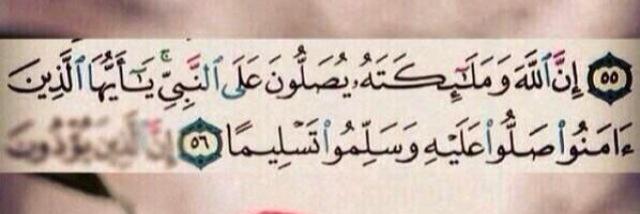 ۝٥٥ إِنَّ ٱللَّهَ وَمَلَٰٓئِكَتَهُۥ يُصَلُّونَ عَلَى ٱلنَّبِيِّۚ يَٰٓأَيُّهَا ٱلَّذِينَ
ءَامَنُوا۟ صَلُّوا۟ عَلَيْهِ وَسَلِّمُوا۟ تَسْلِيمًا ۝٥٦ إِنَّ ٱلَّذِينَ يُؤْذُونَ